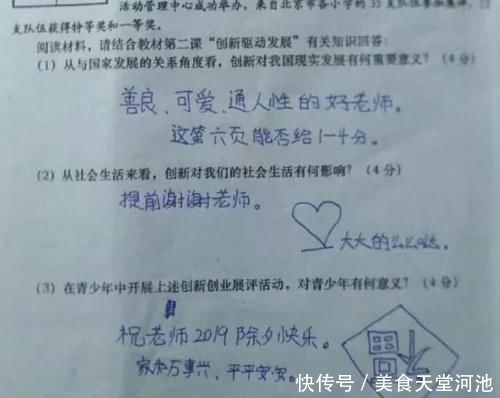 活动管理中心成功举办，来自北京市各小学的35支队伍参加展评，12
支队伍获得特等奖和一等奖。
阅读材料，请结合教材第二课“创新驱动发展”有关知识回答：
(1) 从与国家发展的关系角度看，创新对我国现实发展有何重要意义？（4分）
善良、可爱、通人性的好老师。
这第六页能否给1-4分。
(2) 从社会生活来看，创新对我们的社会生活有何影响？（4分）
提前谢谢老师。
大大的么么哒。
(3) 在青少年中开展上述创新创业展评活动，对青少年有何意义？（4分）
祝老师2019除夕快乐。
家和万事兴、平平安安。
快传号 / 美食天堂河池